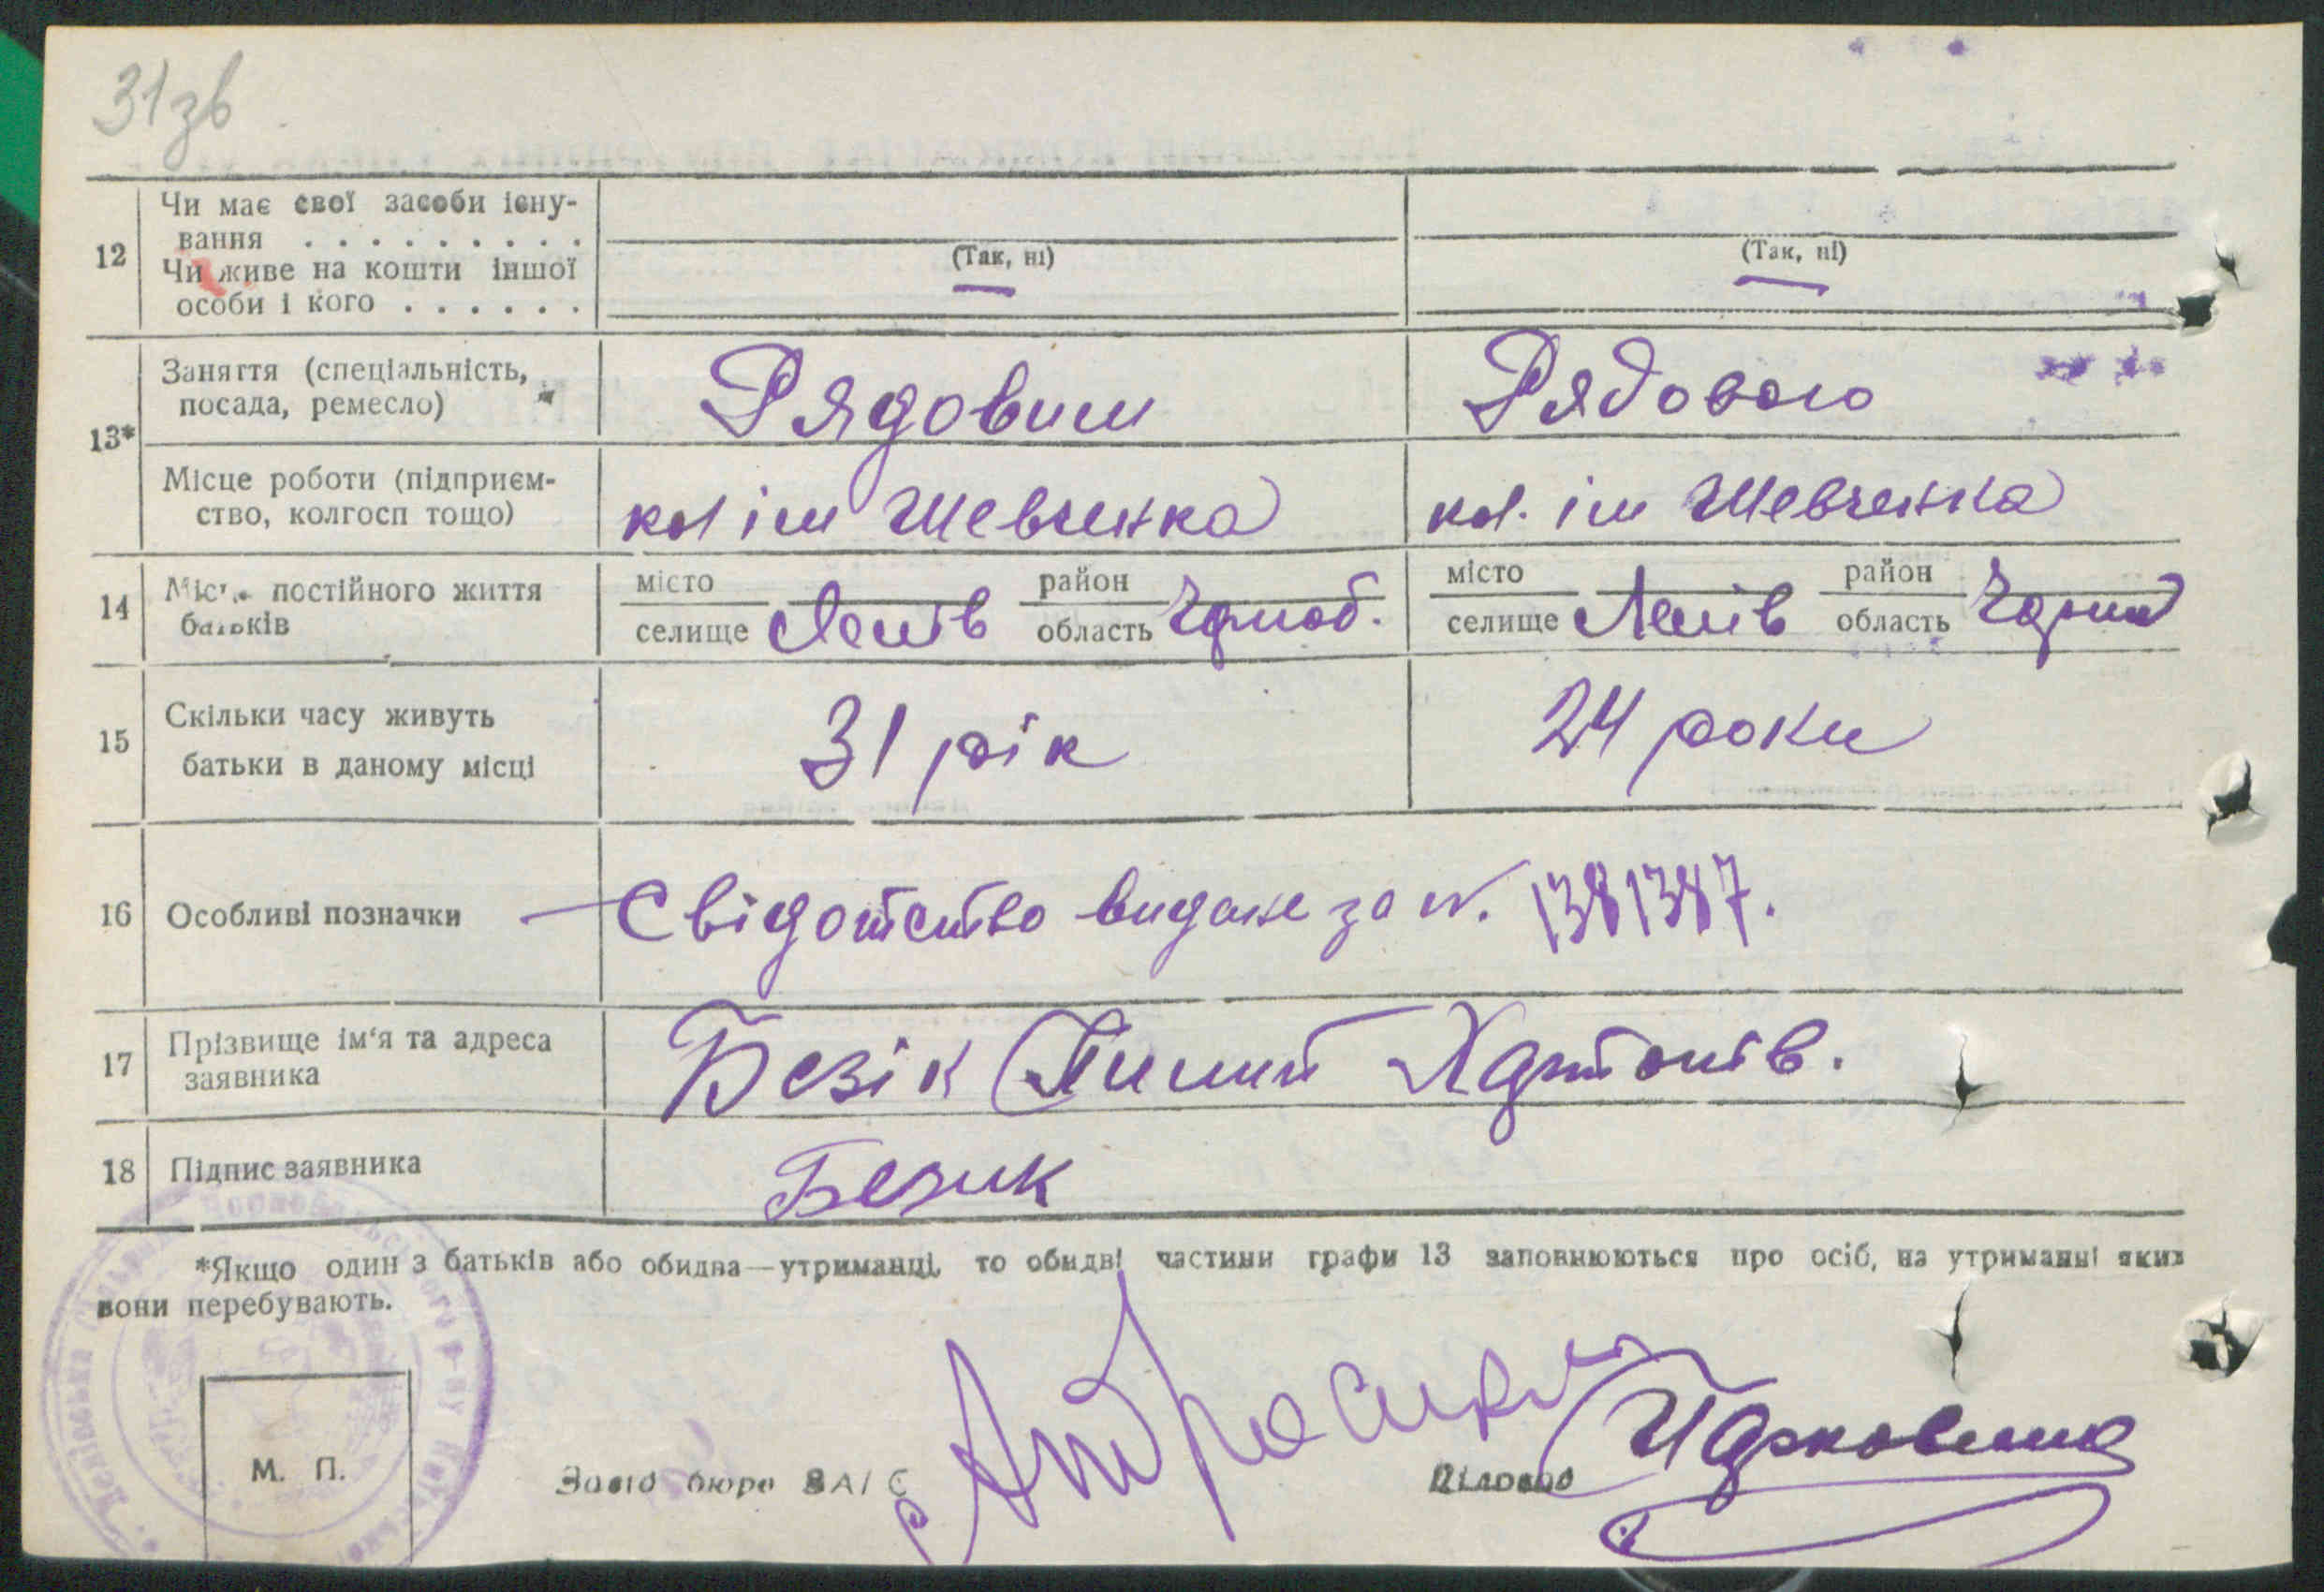 31зв
12
Чи має свої засоби існу-
вання . . . . . . . . .
Чи живе на кошти іншої
особи і кого . . . . . .
(Так, ні)
(Так, ні)
13*
Заняття (спеціальність,
посада, ремесло)
Рядовим
Рядового
Місце роботи (підприєм-
ство, колгосп тощо)
кол ім Шевченка
кол. ім Шевченка
14
Місце постійного життя
батьків
місто
селище Лелів
район
область Чорноб.
місто
селище Лелів
район
область Чорноб
15
Скільки часу живуть
батьки в даному місці
31 рік
24 роки
16
Особливі позначки
Свідотство видане за №. 1381387.
17
Прізвище ім'я та адреса
заявника
Безік Пилип Харитонів.
18
Підпис заявника
Безик
*Якщо один з батьків або обидва—утриманці, то обидві частини графи 13 заповнюються про осіб, на утриманні яких
вони перебувають.
М. П.
Завід бюро ЗАГС
Діловод